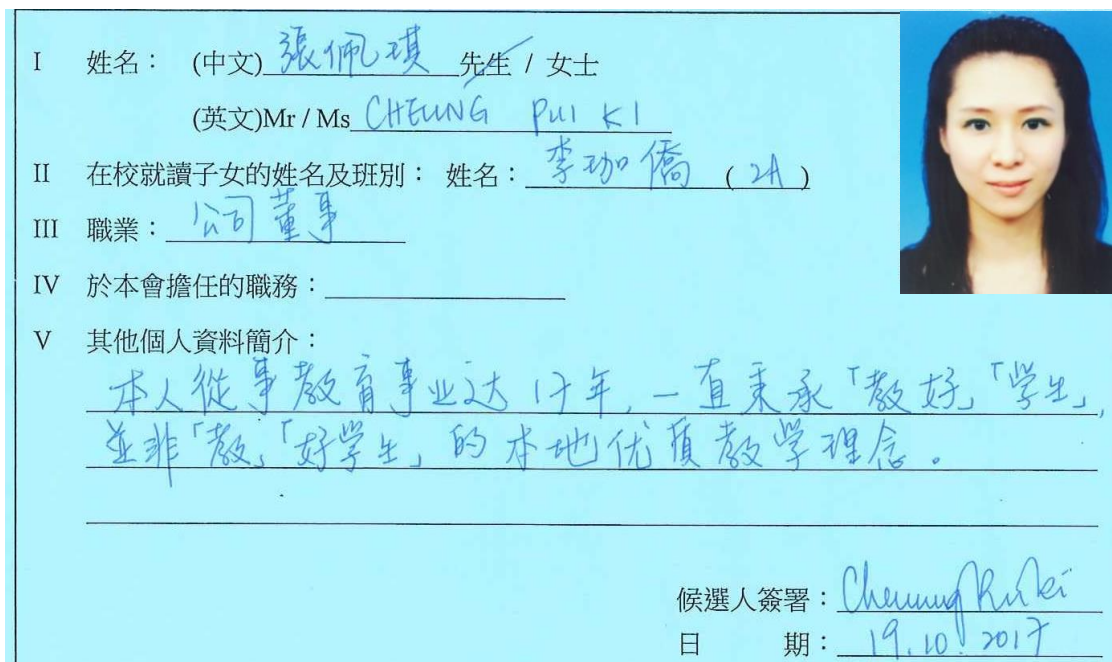 I 姓名： (中文) 張佩琪 先生 / 女士
(英文)Mr / Ms CHEUNG PUI KI
II 在校就讀子女的姓名及班別： 姓名： 李珈僑 ( 2A )
III 職業： 公司董事
IV 於本會擔任的職務：
V 其他個人資料簡介：
本人從事教育事业达17年, 一直秉承「教好」「学生」,
並非「教」「好学生」的本地优質教学理念。
候選人簽署： Cheung Pui Ki
日 期： 19.10.2017